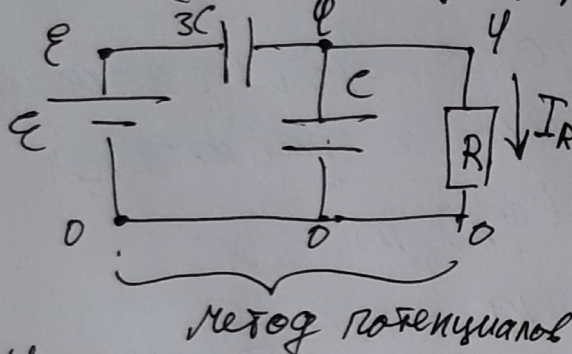 ℰ 3C φ φ
ℰ C R I_R
0 0 0
метод потенциалов